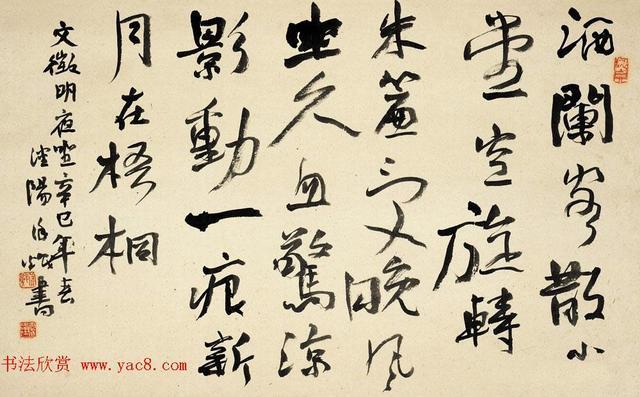 酒闌客散小
堂空旋轉
朱簾受晚風
坐久忽驚涼
影動一痕新
月在梧桐
文徵明夜坐辛巳年春
陽 書
书法欣赏 www.yac8.com